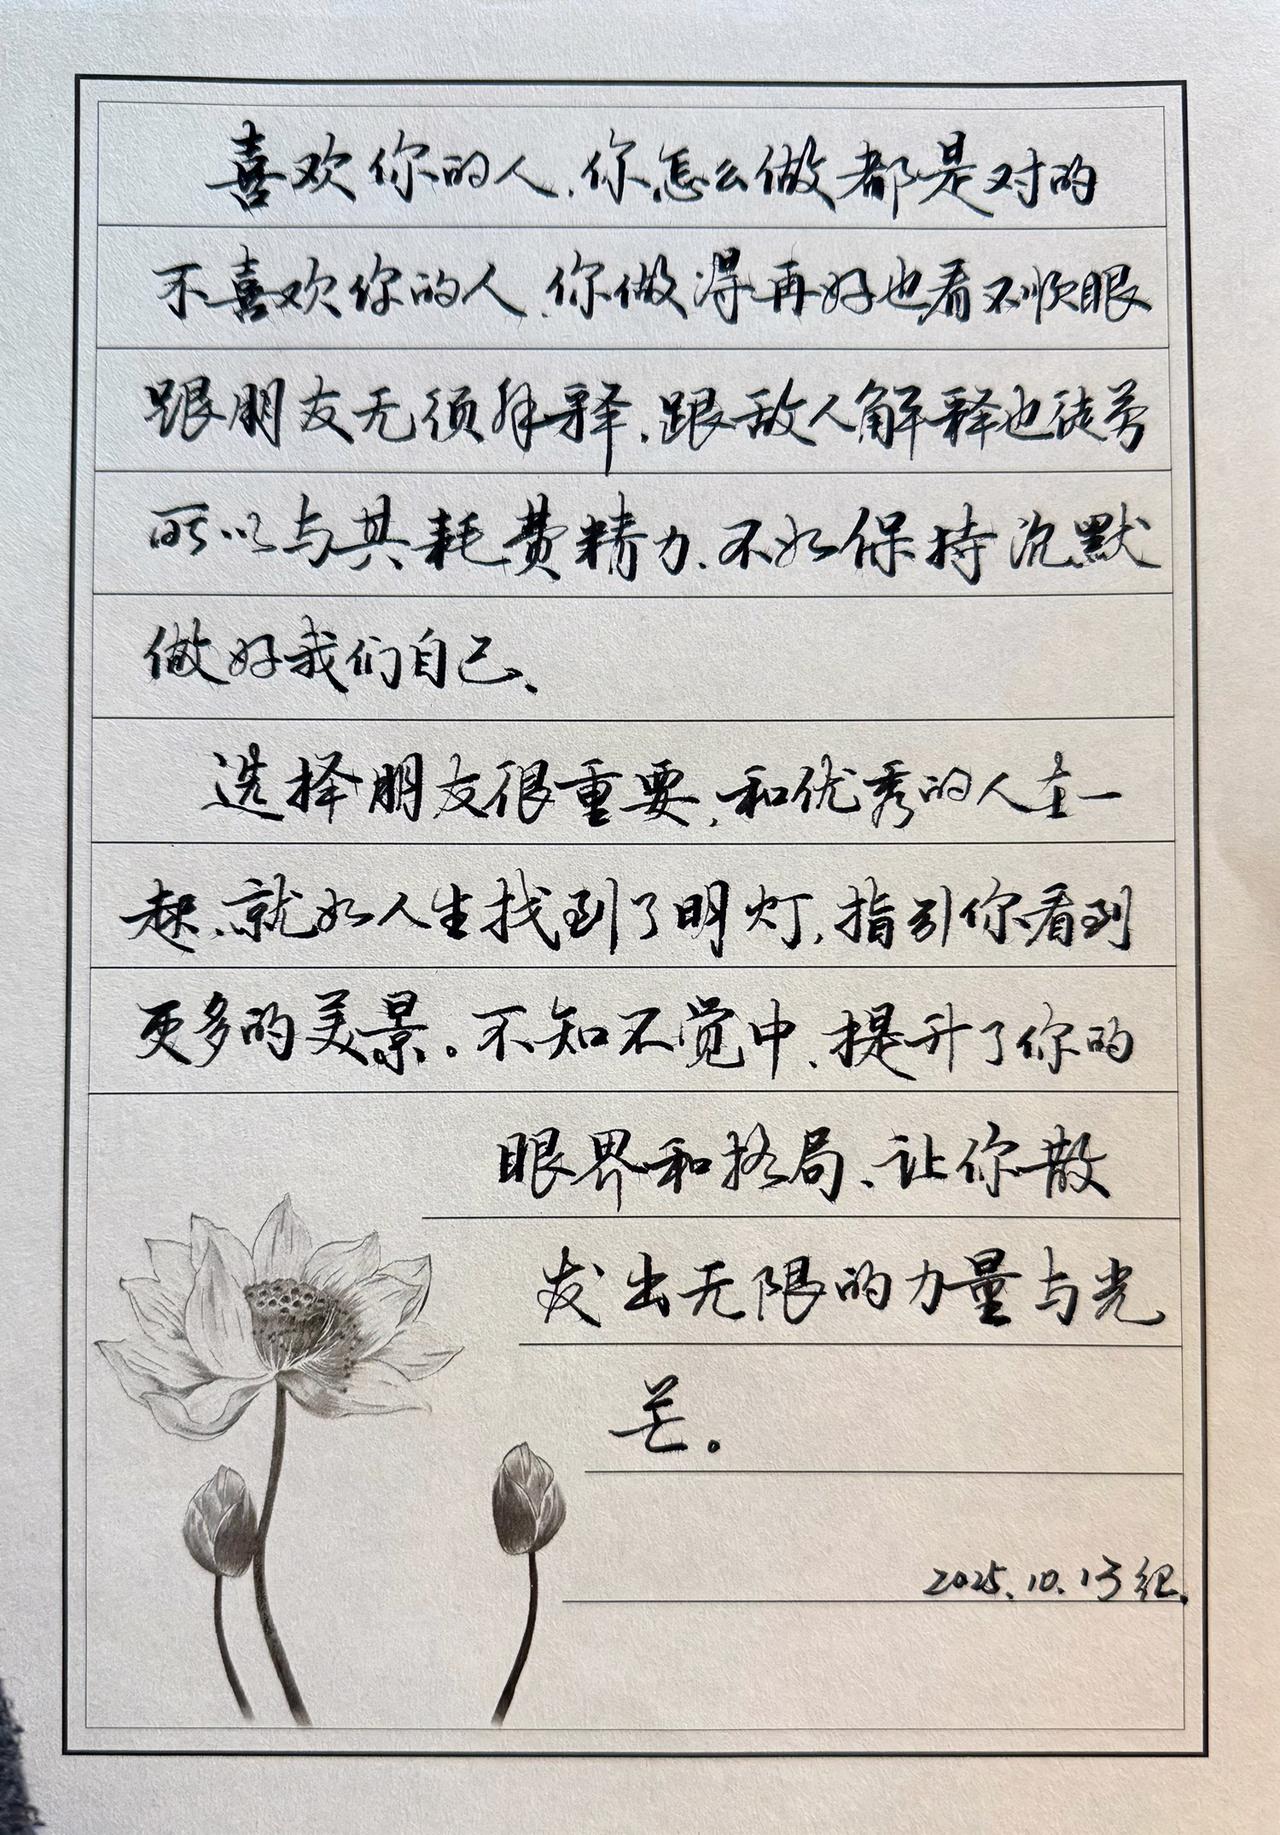 喜欢你的人、你怎么做都是对的
不喜欢你的人、你做得再好也看不顺眼
跟朋友无须解释、跟敌人解释也徒劳
所以与其耗费精力、不如保持沉默
做好我们自己、
选择朋友很重要、和优秀的人在一
起、就如人生找到了明灯，指引你看到
更多的美景。不知不觉中、提升了你的
眼界和格局、让你散
发出无限的力量与光
芒。
2025.10.13纪.